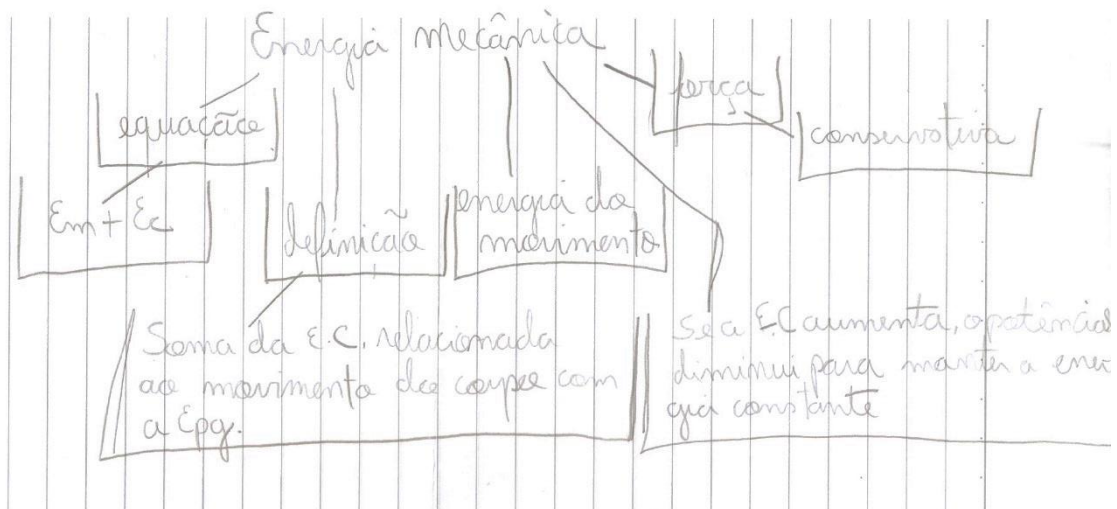 Energia mecânica
força
equação
conservativa
Em + Ec
definição
energia do
movimento
Soma da E.C. relacionada
ao movimento do corpo com
a Epg.
Se a E.C aumenta, a potência
diminui para manter a ener
gia constante